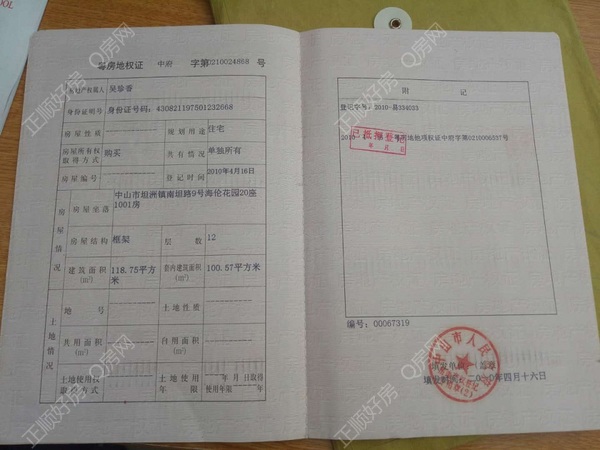 粤房地权证 中府 字第0210024868 号
房地产权属人 吴珍香
身份证明号 身份证号码:430821197501232668
房屋性质
规划用途 住宅
房屋所有权取得方式 购买
共有情况 单独所有
房屋编号
登记时间 2010年4月16日
房屋情况
房屋坐落 中山市坦洲镇南坦路9号海伦花园20座1001房
房屋结构 框架
层数 12
建筑面积(m²) 118.75平方米
套内建筑面积(m²) 100.57平方米
土地情况
地号
土地性质
共用面积(m²)
自用面积(m²)
土地使用权取得方式
土地使用年限
年 月 日取得
使用年限 年
附 记
已抵押登记
年 月 日
编号: 00067319
中山市人民
填发单位
填发时间
年四月十六日
正顺好房
Q房网